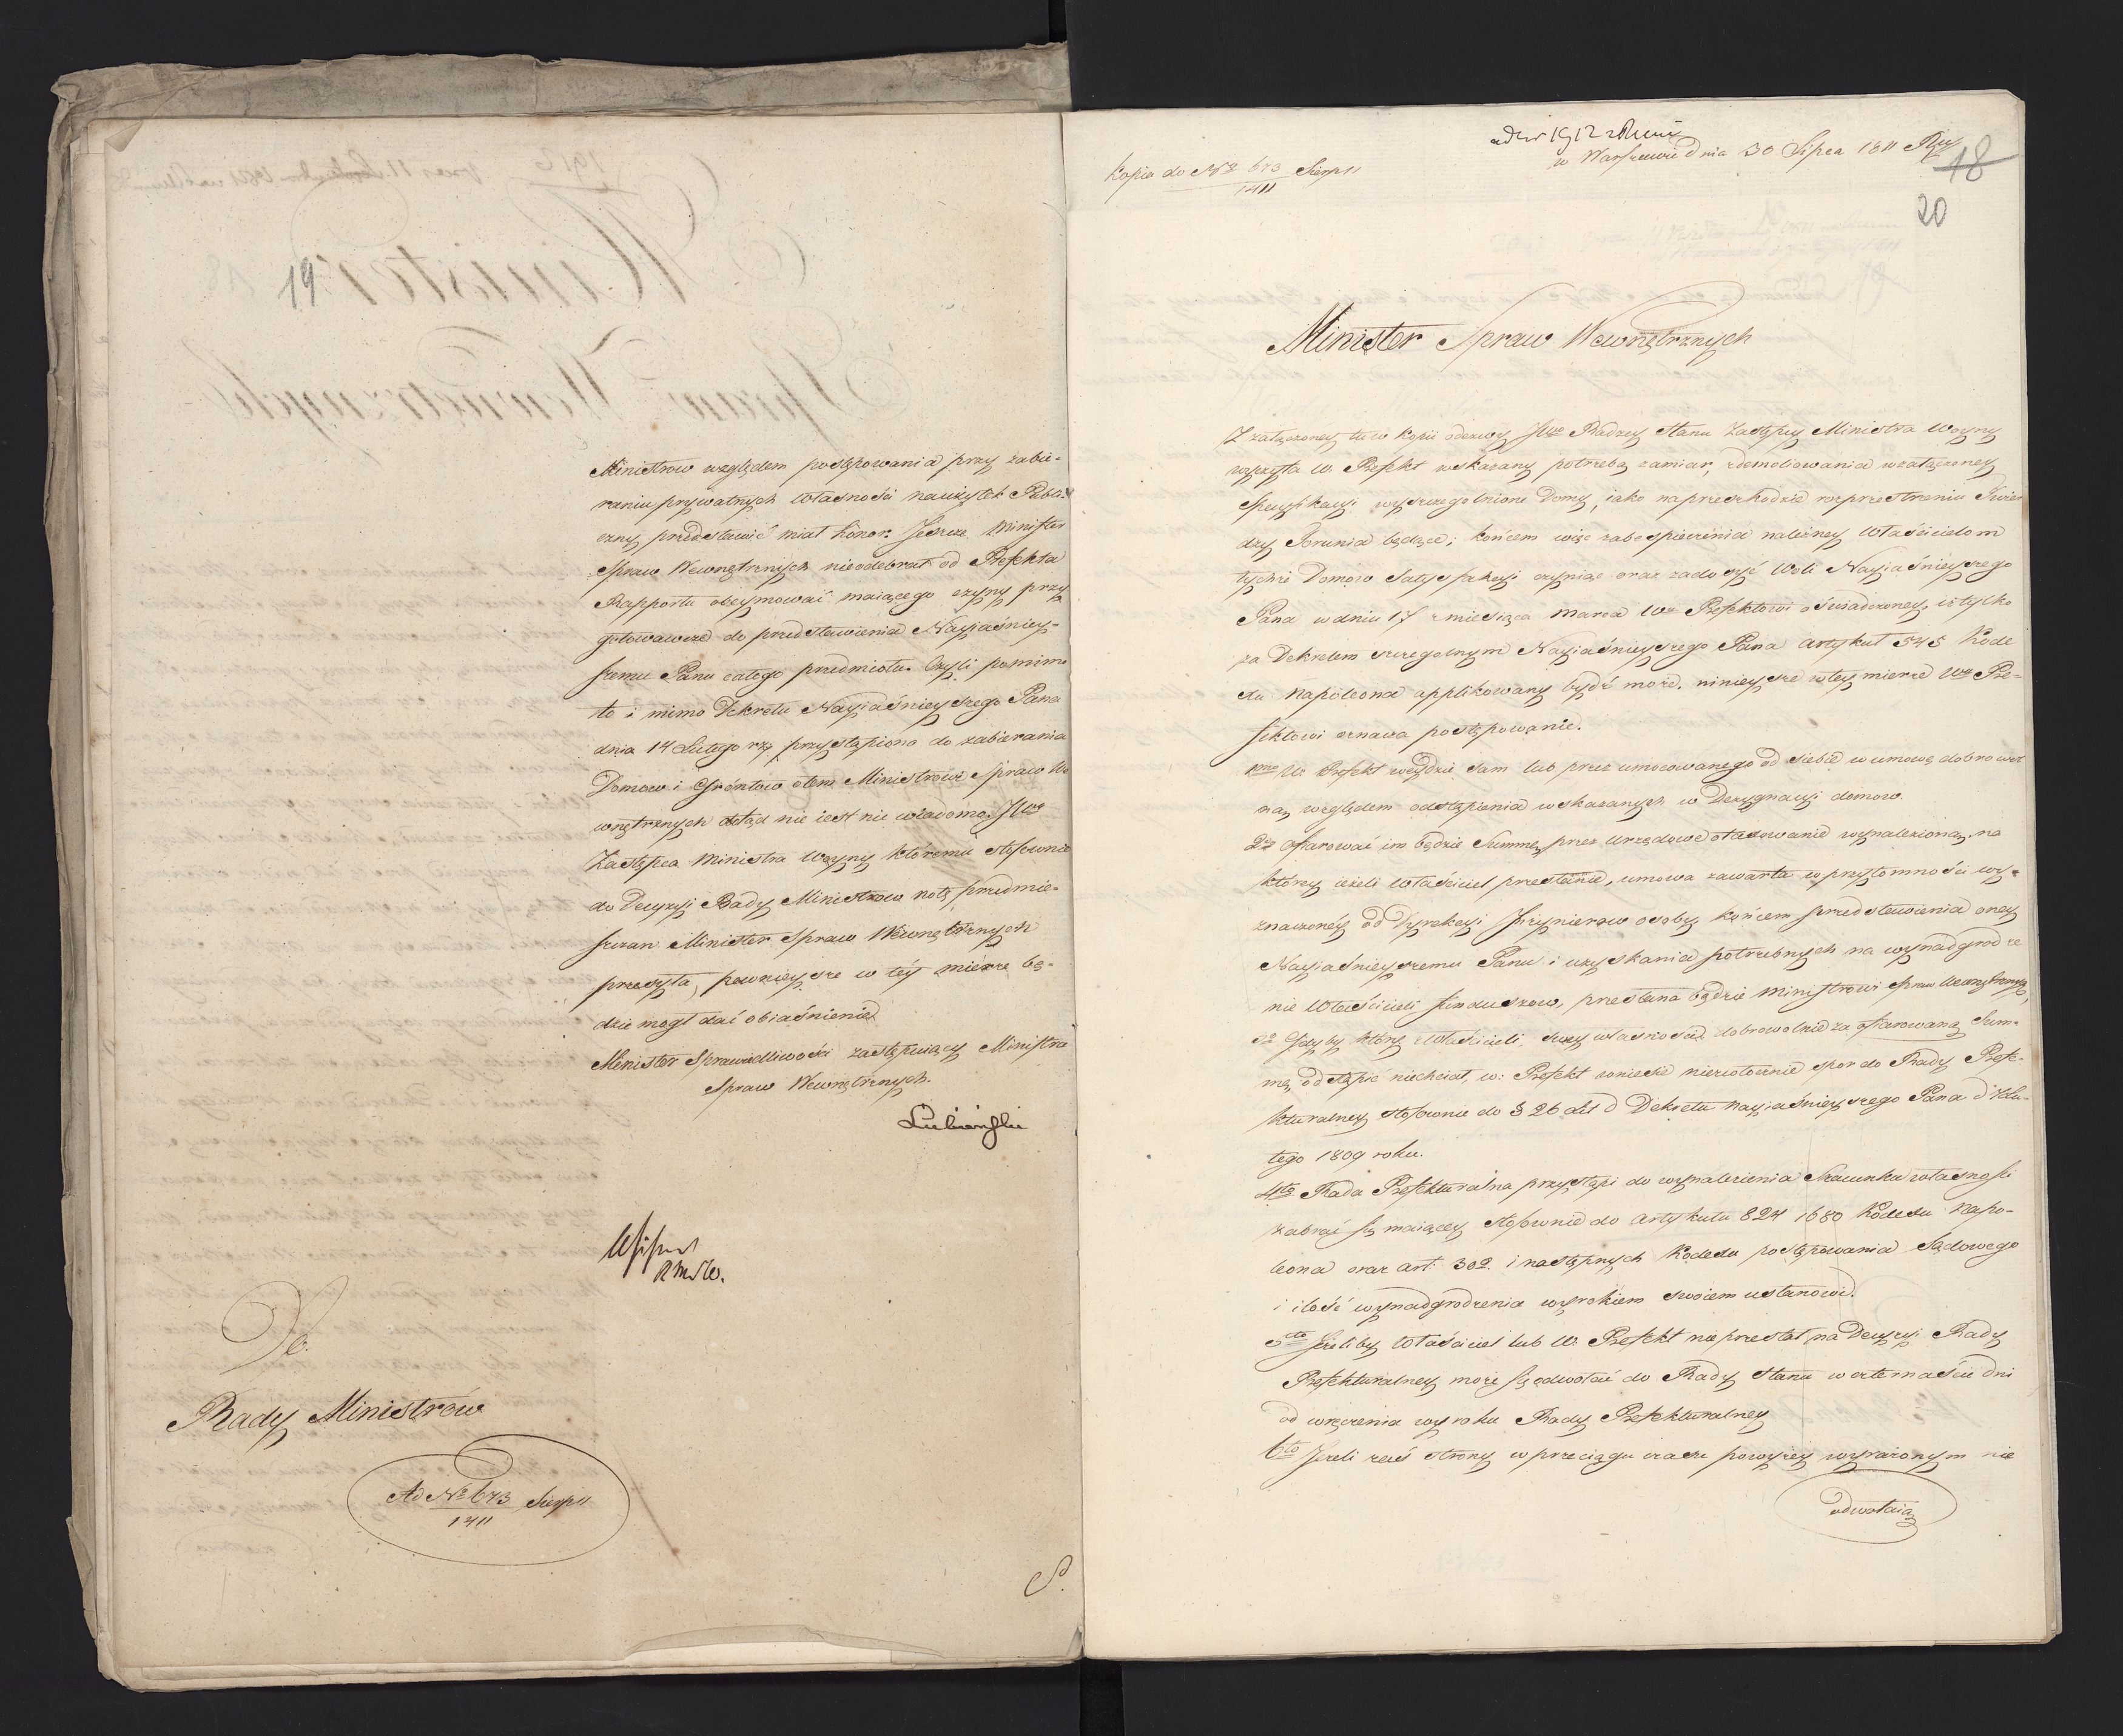 19
Ministrow względem postępowania przy zabie-
raniu prywatnych własności na użytek Publi-
czny przedstawić miał honor. Jeszcze Minister
Spraw Wewnętrznych nieodebrał od Prefekta
Rapportu obeymować maiącego czyny przy
gotowawcze do przedstawienia Nayiaśniey-
szemu Panu całego przedmiotu. Czyli pomimo
to i mimo Dekretu Nayiaśnieyszego Pana
dnia 14 Lutego rż przystąpiono do zabierania
Domow i Gróntow otem Ministrowi Spraw We
wnętrznych dotąd nie iest nic wiadomo. JWz
Zastępca Ministra Woyny któremu stosownie
do Decyzyi Rady Ministrow notę przedmie-
szczan Minister Spraw Wewnętrznych
przesyła, pewnieysze w téy mierze bę-
dzie mogł dać obiaśnienie.
Minister Sprawiedliwości zastępuiący Ministra
Spraw Wewnętrznych.
Łubieński
Do
Rady Ministrów
Ad No 673 Sierp 11
1411
Kopia do No 673 Sierp 11
1411
ad No 1912
w Warszawie dnia 30 Lipca 1811 Ru
18
20
Minister Spraw Wewnętrznych
Z załączoney tu w kopii odezwy JWo Radzcy Stanu Zastępcy Ministra Woyny
wyczyta W. Prefekt wskazany potrzebą zamiar, zdemoliowania w załączoney
Specyfikacyi wyszczegolnione Domy, iako na przeszkodzie rozprzestrenin Twie
dzy Torunia będące; końcem więc zabespieczenia należney Właścicielom
tychże Domow Satysfakcyi czyniąc oraz zadosyć Woli Nayiaśnieyszego
Pana w dniu 17 miesiąca Marca Wu Prefektowi oświadczoney, iż tylko
za Dekretem szczegolnym Nayiaśnieyszego Pana artykuł 545 Kode
xu Napoleona applikowany bydź może, ninieysze w tey mierze Wu Pre-
fektowi oznawa postępowanie.
1mo W. Prefekt weydzie sam lub przez umocowanego od siebie w umowę dobrowol
ną, względem odstąpienia wskazanych w Dezygnacyi domow.
2do Ofiarować im będzie Summę przez Urzędowe otaxowanie wynalezioną, na
którey ieżeli Właściciel przestanie, umowa zawarta w przytomności wy-
znaczonéy od Dyrekcyi Inżynierow osoby, końcem przedstawienia oney
Nayiaśnieyszemu Panu i uzyskania potrzebnych na wynadgrodze
nie Właścicieli funduszow, przesłana będzie Ministrowi Spraw Wewnętrznych,
3o Gdyby który z Właścicieli swey własności dobrowolnie za ofiarowaną Sum-
mę, odstąpić niechciał, W: Prefekt wniesie niezwłocznie spor do Rady Prefe-
kturalney stosownie do § 26 Dekretu Nayiaśnieyszego Pana d 7 Lu-
tego 1809 roku.
4to Rada Prefekturalna przystąpi do wynalezienia Szacunku własności
zabrać się maiącey, stosownie do artykułu 824 1680 Kodexu Napo-
leona oraz art: 302. i następnych Kodexu postępowania Sądowego
i ilość wynadgrodzenia wyrokiem swoiem ustanowi.
5to Jeżeliby Właściciel lub W. Prefekt nie przestał na Decyzyi Rady
Prefekturalney może się odwołać do Rady Stanu w czternaście dni
od wręczenia wyroku Rady Prefekturalney
6to Jeżeli zaś strony w przeciągu czasu powyżey wyrażonym nie
odwołaią